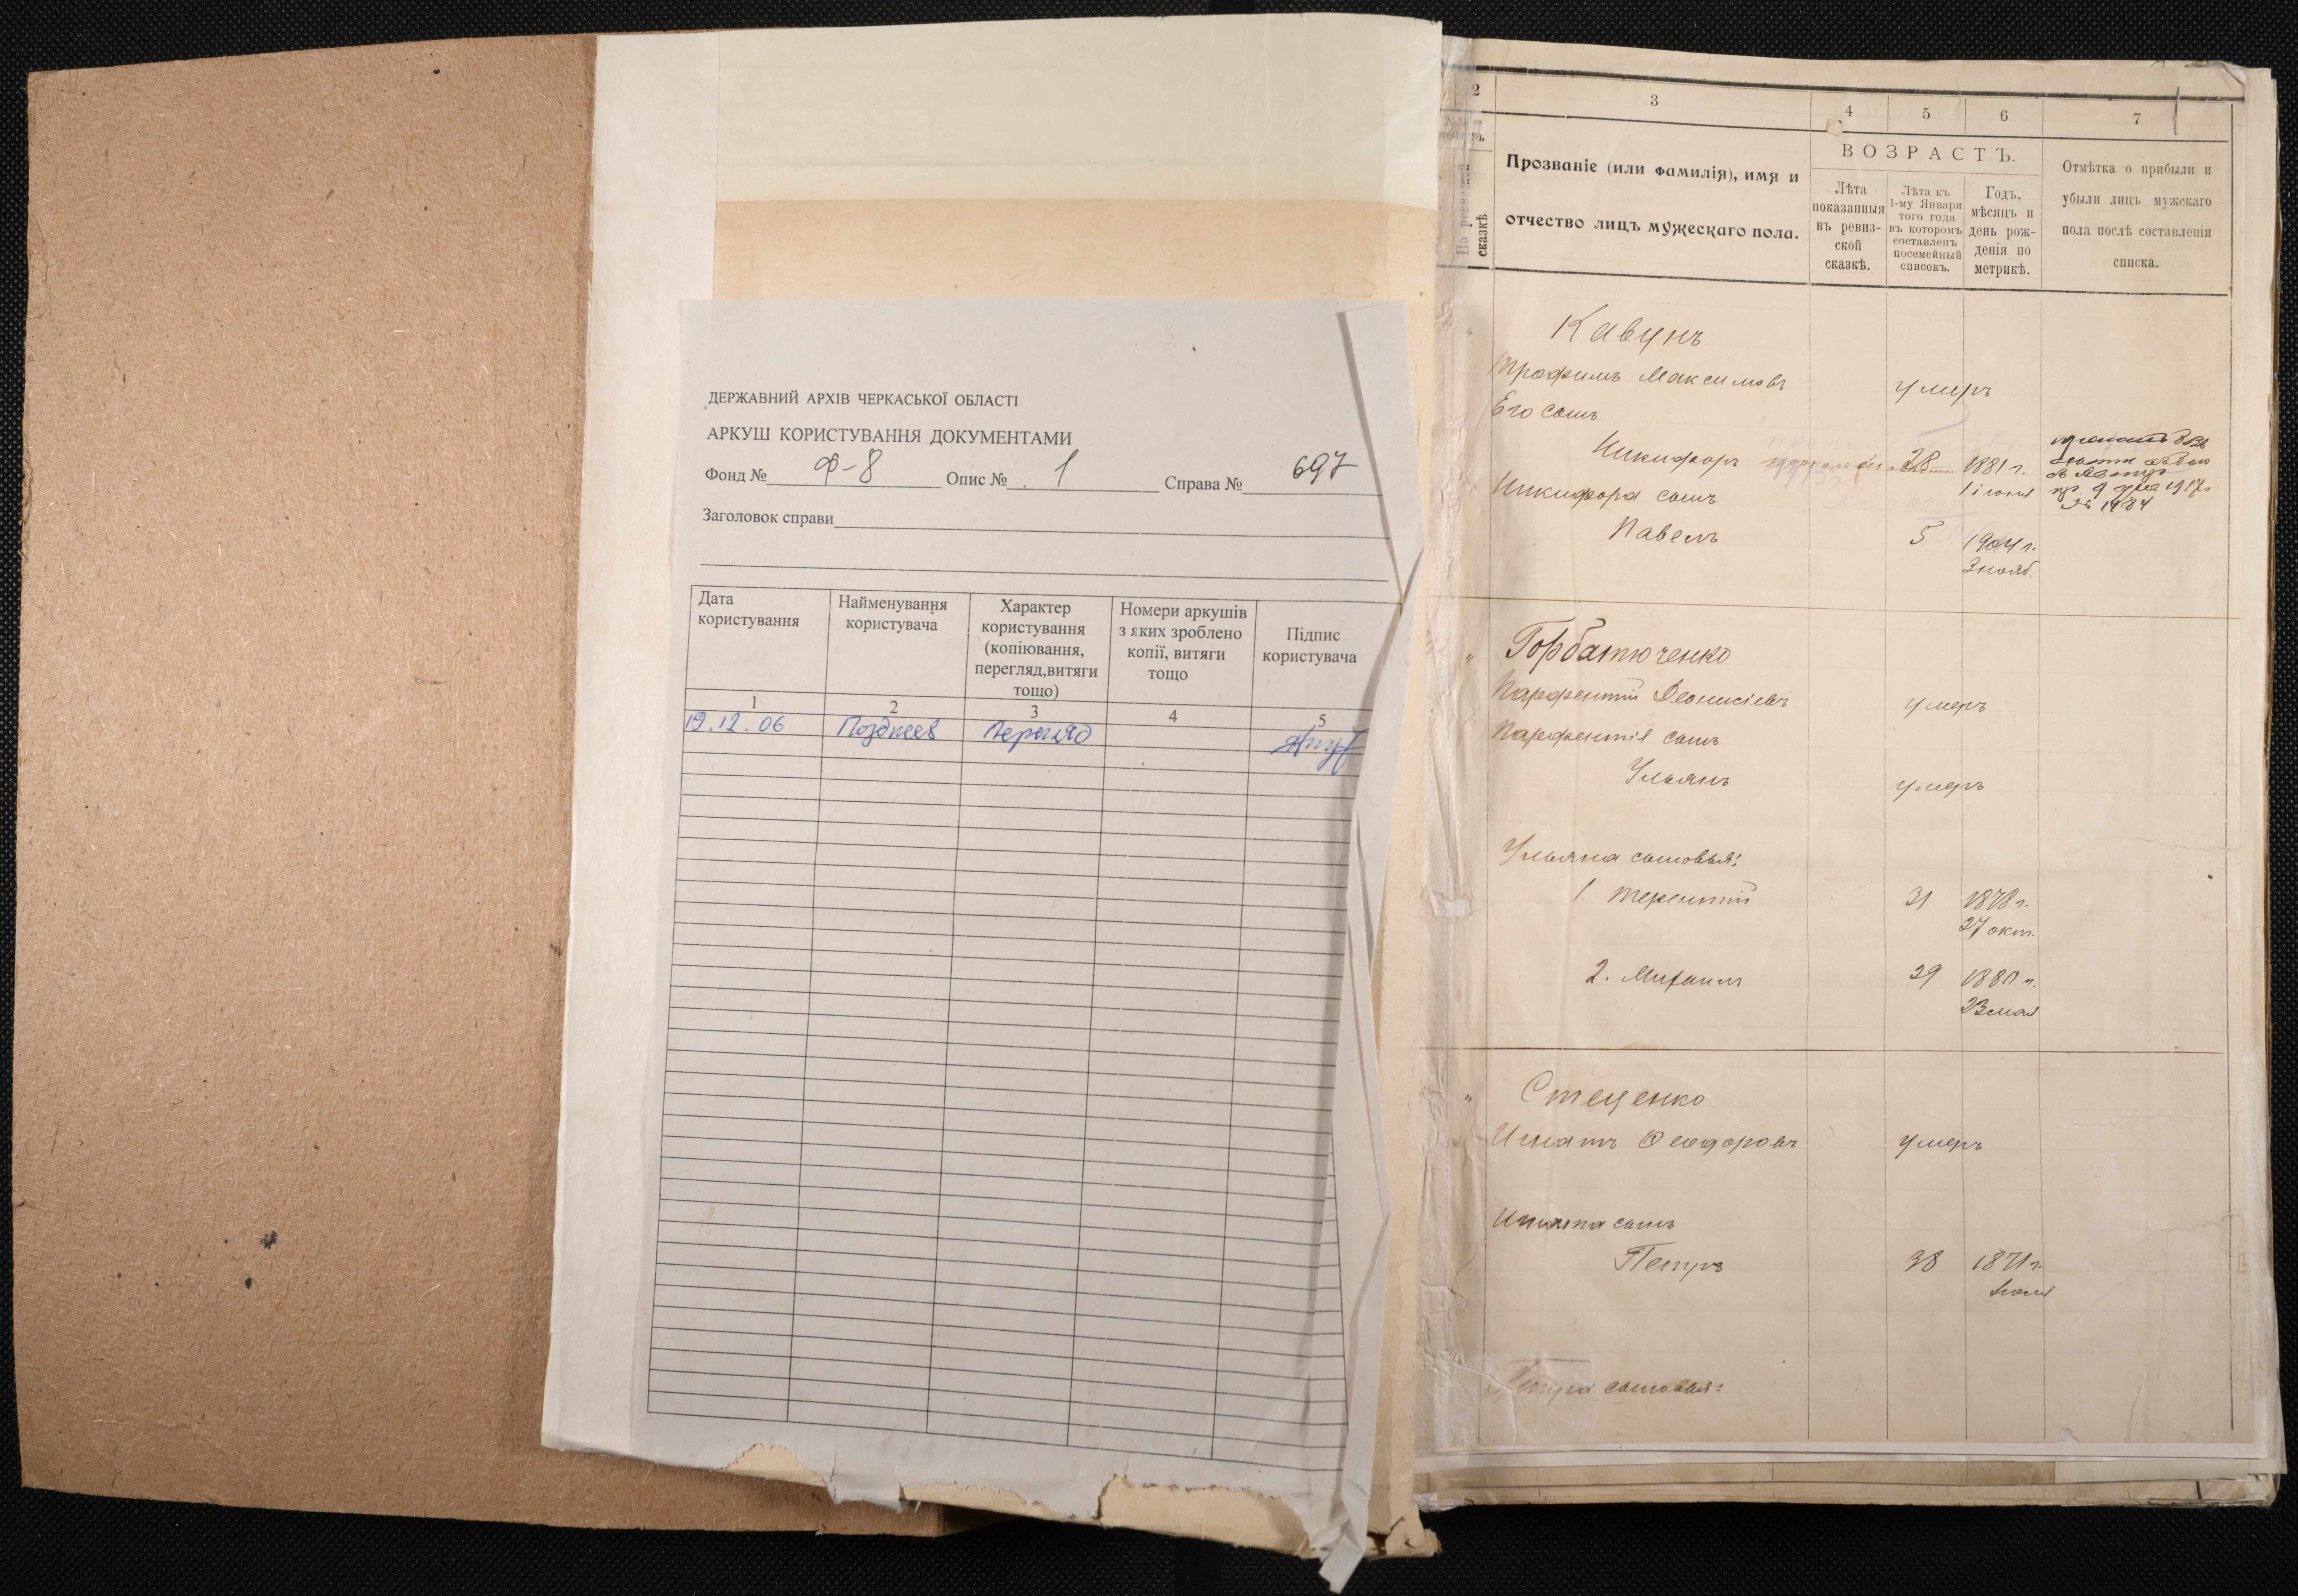 ДЕРЖАВНИЙ АРХІВ ЧЕРКАСЬКОЇ ОБЛАСТІ
АРКУШ КОРИСТУВАННЯ ДОКУМЕНТАМИ
Фонд № Ф-8 Опис № 1 Справа № 697
Заголовок справи
Дата користування
Найменування користувача
Характер користування (копіювання, перегляд,витяги тощо)
Номери аркушів з яких зроблено копії, витяги тощо
Підпис користувача
1 2 3 4 5
19.12.06 Позднеев Перегляд
2 3 4 5 6 7
По ревизской сказкѣ.
Прозваніе (или фамилія), имя и
отчество лицъ мужескаго пола.
ВОЗРАСТЪ.
Лѣта показанныя въ ревиз-ской сказкѣ.
Лѣта къ 1-му Января того года въ которомъ составленъ посемейный списокъ.
Годъ, мѣсяцъ и день рож-денія по метрикѣ.
Отмѣтка о прибыли и
убыли лицъ мужскаго
пола послѣ составленія
списка.
" Кавунъ
Трофимъ Максимовъ умеръ
Его сынъ
Никифоръ 28 1881 г.
1 іюня
1917 г.
№ 1984
Никифора сынъ
Павелъ 5 1904 г.
3 нояб.
" Горбатюченко
Парфентій Деонисіевъ умеръ
Парфентія сынъ
Ульянъ умеръ
Ульяна сыновья:
1. Терентій 31 1878 г.
27 окт.
2. Михаилъ 29 1880 г.
23 мая
" Стеценко
Игнатъ Ѳеодоровъ умеръ
Игната сынъ
Петръ 38 1871 г.
Петра сыновья: